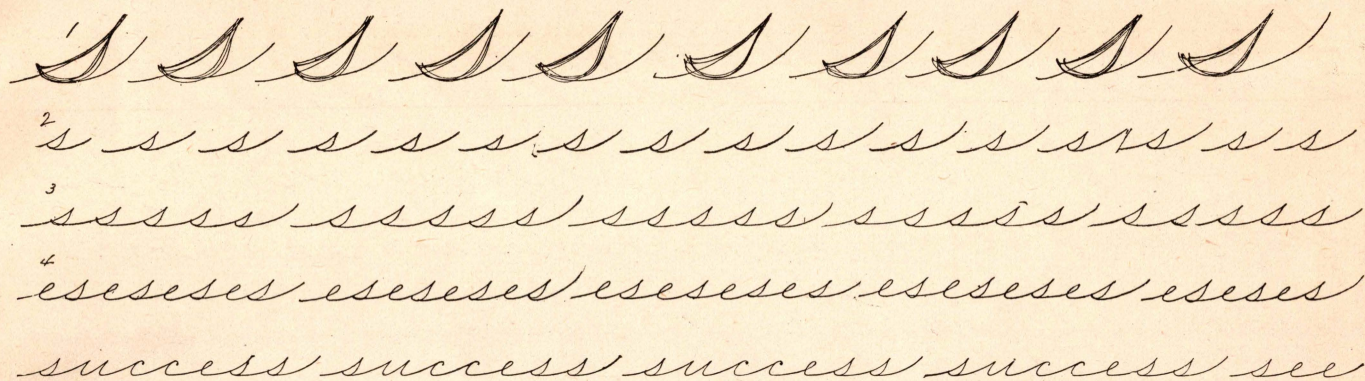 1 s s s s s s s s s s
2 s s s s s s s s s s s s s s s s
3 sssss sssss sssss sssss sssss
4 eseseses eseseses eseseses eseseses eseses
success success success success see